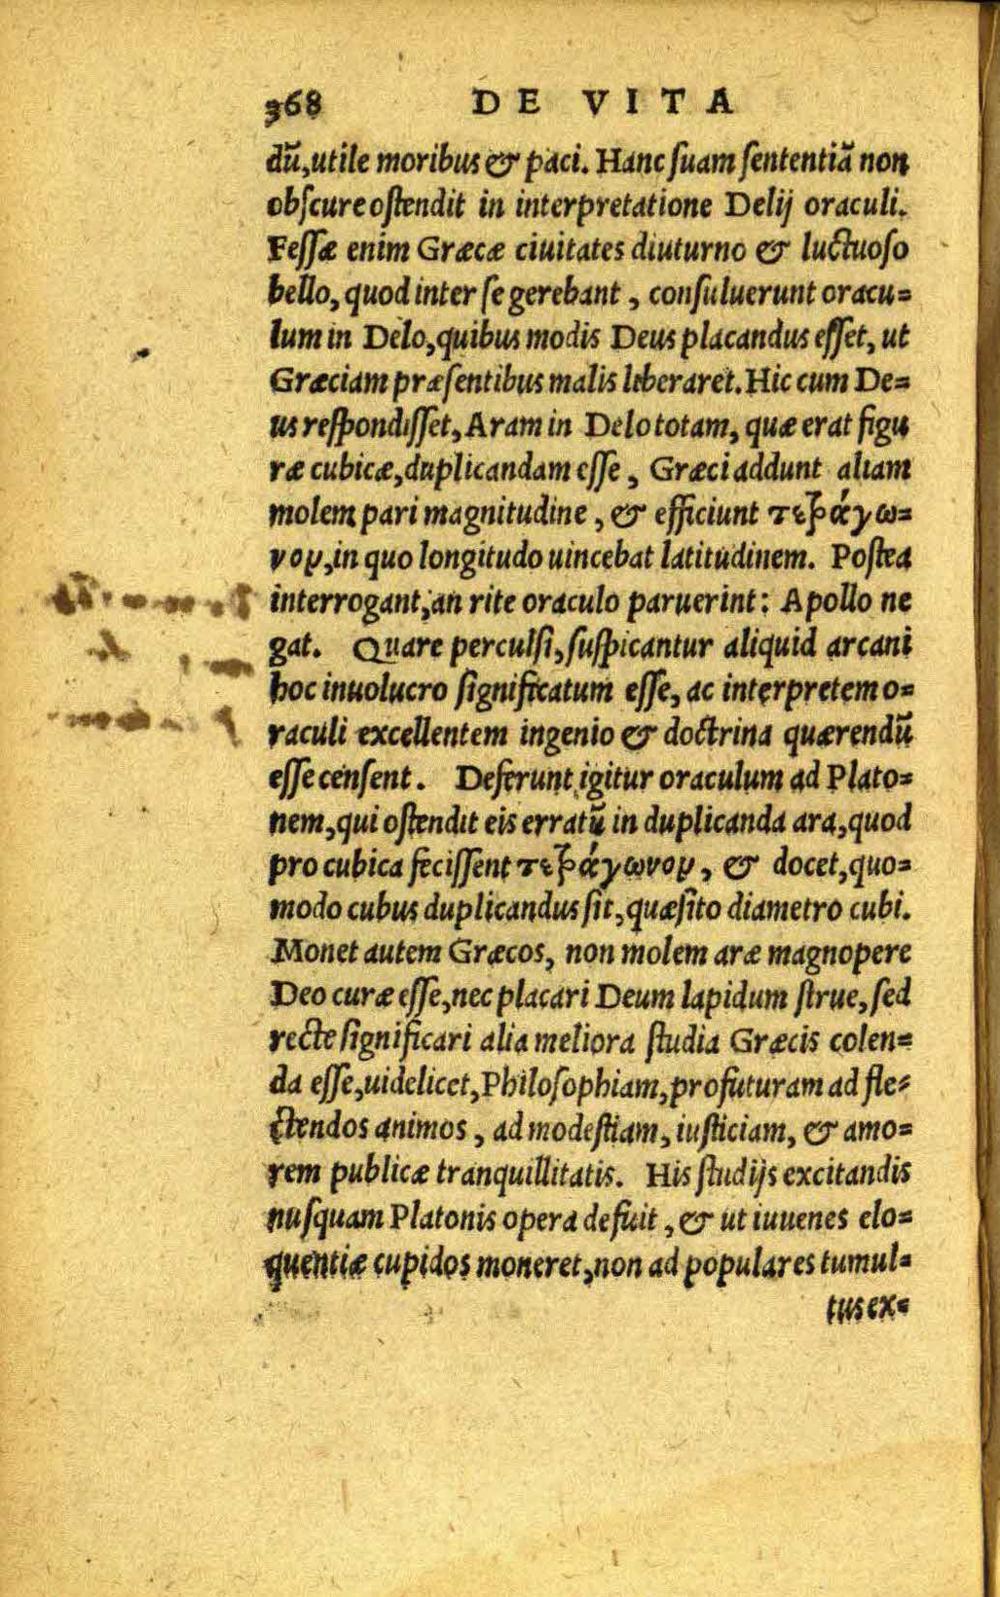 368 DE VITA
dũ,utile moribus & paci. Hanc ſuam ſententiã non
obſcure oſtendit in interpretatione Delij oraculi.
Feſſæ enim Græcæ ciuitates diuturno & luctuoſo
bello, quod inter ſe gerebant, conſuluerunt oracu=
lum in Delo, quibus modis Deus placandus eſſet, ut
Græciam præſentibus malis liberaret. Hic cum De=
us reſpondiſſet, Aram in Delo totam, quæ erat figu
ræ cubicæ, duplicandam eſſe, Græci addunt aliam
molem pari magnitudine, & efficiunt τετράγω=
νον, in quo longitudo uincebat latitudinem. Poſtea
interrogant, an rite oraculo paruerint: Apollo ne
gat. Quare perculſi, ſuſpicantur aliquid arcani
hoc inuolucro ſignificatum eſſe, ac interpretem o=
raculi excellentem ingenio & doctrina quærendũ
eſſe cenſent. Deferunt igitur oraculum ad Plato=
nem, qui oſtendit eis erratũ in duplicanda ara, quod
pro cubica feciſſent τετράγωνον, & docet, quo=
modo cubus duplicandus ſit, quæſito diametro cubi.
Monet autem Græcos, non molem aræ magnopere
Deo curæ eſſe, nec placari Deum lapidum ſtrue, ſed
recte ſignificari alia meliora ſtudia Græcis colen=
da eſſe, uidelicet, Philoſophiam, profuturam ad fle=
ctendos animos, ad modeſtiam, iuſticiam, & amo=
rem publicæ tranquillitatis. His ſtudijs excitandis
nuſquam Platonis opera defuit, & ut iuuenes elo=
quentiæ cupidos moneret, non ad populares tumul=
tus ex=